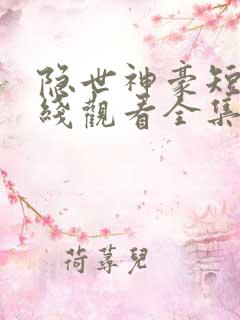 隐世神豪短
綫觀看全集
荷蕚兒